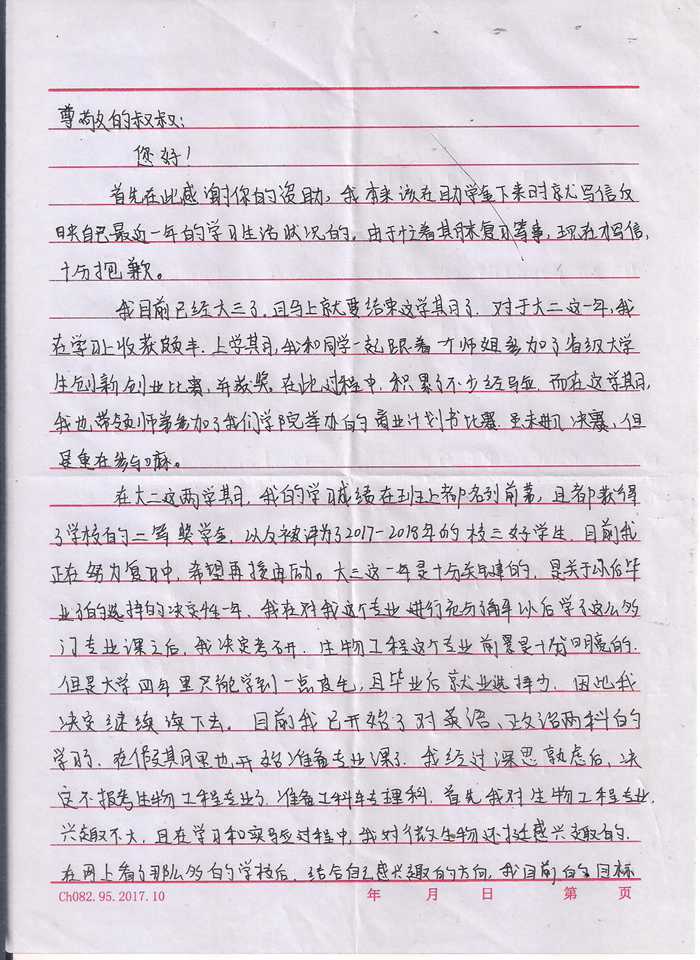 尊敬的叔叔:
您好!
首先在此感谢你的资助,我本来该在助学金下来时就写信反
映自己最近一年的学习生活状况的,由于忙着期末复习等事,现在才写信,
十分抱歉。
我目前已经大三了,且马上就要结束这学期了.对于大二这一年,我
在学习上收获颇丰.上学期,我和同学一起跟着一个师姐参加了省级大学
生创新创业比赛,并获奖.在此过程中,积累了不少经验.而在这学期,
我也带领师弟参加了我们学院举办的商业计划书比赛.虽未进入决赛,但
是重在参与嘛。
在大二这两学期,我的学习成绩在班上都名列前茅,且都获得
了学校的二等奖学金,以及被评为了2017-2018年的校三好学生.目前我
正在努力复习中,希望再接再励。大三这一年是十分关键的,是关于以后毕
业了的选择的决定性一年.我在对我这个专业进行充分了解以后学了这么多
门专业课之后,我决定考研.生物工程这个专业前景是十分明亮的.
但是大学四年里只能学到一点皮毛,且毕业后就业选择少.因此我
决定继续读下去。目前我已开始了对英语、政治两科的
学习了.在假期里也开始准备专业课了.我经过深思熟虑后,决
定不报考生物工程专业了.准备工科转理科.首先我对生物工程专业
兴趣不大,且在学习和实验过程中,我对微生物还挺感兴趣的.
在网上看了那么多的学校后.结合自己感兴趣的方向,我目前的目标
Ch082.95.2017.10 年 月 日 第 页